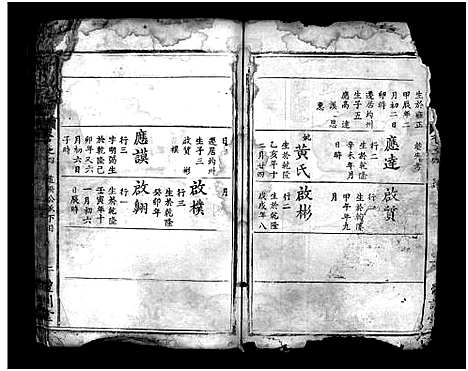 生於雍正
甲辰年二
月初二日
卯時
遷居均州
生子五
應高 達
謨思
惠
應達
行二
生於乾隆
辛未年月
日時
妣黃氏
生於乾隆
乙亥年十
二月廿四
日
遷居均州
生子三
啟賀 彬
樸
應謨
行三
字明蕩生
於乾隆己
卯年又六
月初六日
子時
啟賀
行一
生於乾隆
甲午年九
月
啟彬
行二
生於乾隆
戊戌年八
月
啟樸
行三
生於乾隆
癸卯年
啟翱
行一
生於乾隆
壬寅年十
一月初六
日辰時